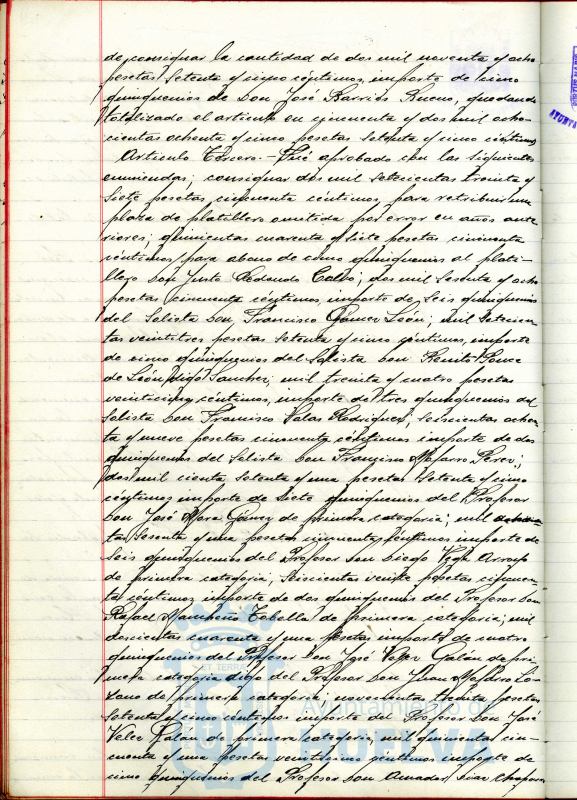 de consignar la cantidad de dos mil noventa y ocho
pesetas setenta y cinco céntimos, importe de cinco
quinquenios de Don José Barrios Bueno, quedando
totalizado el artículo en cincuenta y dos mil ocho-
cientas ochenta y cinco pesetas setenta y cinco céntimos
Artículo Tercero.- Fué aprobado con las siguientes
enmiendas; consignar dos mil setecientas treinta y
siete pesetas cincuenta céntimos para retribuir una
plaza de platillero omitida por error en años ante-
riores; quinientas cuarenta y siete pesetas cincuenta
céntimos para abono de cinco quinquenios al plati-
llero don Justo Redondo Calvo; dos mil sesenta y ocho
pesetas cincuenta céntimos, importe de seis quinquenios
del Solista Don Francisco Gómez León; mil setecien-
tas veintitres pesetas setenta y cinco céntimos, importe
de cinco quinquenios del Solista don Benito Ponce
de León digo Sanchez; mil treinta y cuatro pesetas
veinticinco céntimos, importe de tres quinquenios del
solista don Francisco Salas Rodriguez; seiscientas ochen-
ta y nueve pesetas cincuenta céntimos importe de dos
quinquenios del Solista don Francisco Navarro Perez;
dos mil ciento setenta y una pesetas setenta y cinco
céntimos importe de siete quinquenios del Profesor
don José Mora Gómez de primera categoria; mil ochocien-
tas sesenta y una pesetas cincuenta céntimos importe de
seis quinquenios del Profesor don Diego Vega Arroyo
de primera categoria; seiscientas veinte pesetas cincuen-
ta céntimos importe de dos quinquenios del Profesor don
Rafael de primera categoria; mil
doscientas cuarenta y una pesetas importe de cuatro
quinquenios del Profesor don José Velez Galán de pri-
mera categoria digo del Profesor don Juan Navarro Lo-
zano de primera categoria; novecientas treinta pesetas
setenta y cinco céntimos importe del Profesor don José
Velez Galán de primera categoria; mil quinientas cin-
cuenta y una pesetas veinticinco céntimos importe de
cinco quinquenios del Profesor don Amador
Ayuntamiento de
HUELVA